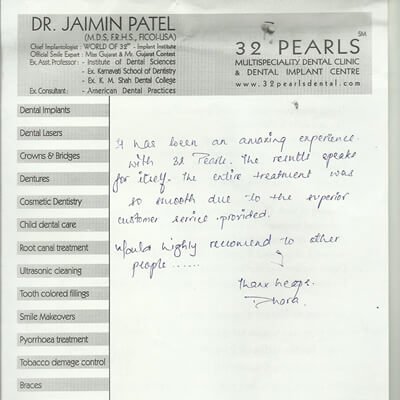 DR. JAIMIN PATEL
(M.D.S, F.R.H.S., FICOI-USA)
Chief Implantologist : WORLD OF 32" - Implant Institute
Official Smile Expert : Miss Gujarat & Mr. Gujarat Contest
Ex. Asst. Professor : - Institute of Dental Sciences
- Ex. Karnavati School of Dentistry
- Ex. K. M. Shah Dental College
Ex. Consultant : - American Dental Practices
32 PEARLS SM
MULTISPECIALITY DENTAL CLINIC
& DENTAL IMPLANT CENTRE
www.32pearlsdental.com
Dental Implants
Dental Lasers
Crowns & Bridges
Dentures
Cosmetic Dentistry
Child dental care
Root canal treatment
Ultrasonic cleaning
Tooth colored fillings
Smile Makeovers
Pyorrhoea treatment
Tobacco demage control
Braces
It has been an amazing experience
with 32 Pearls. The results speaks
for itself. The entire treatment was
so smooth due to the superior
customer service provided.
Would highly recomend to other
people ......
Thanx heaps.
Dhara.